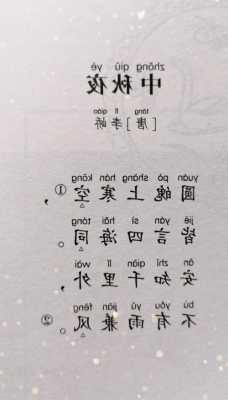 zhōng qiū yè
中秋夜
táng lǐ qiáo
[唐]李峤
yuán pò shàng hán kōng
圆魄上寒空①，
jiē yán sì hǎi tóng
皆言四海同。
ān zhī qiān lǐ wài
安知千里外，
bù yǒu yǔ jiān fēng
不有雨兼风②。